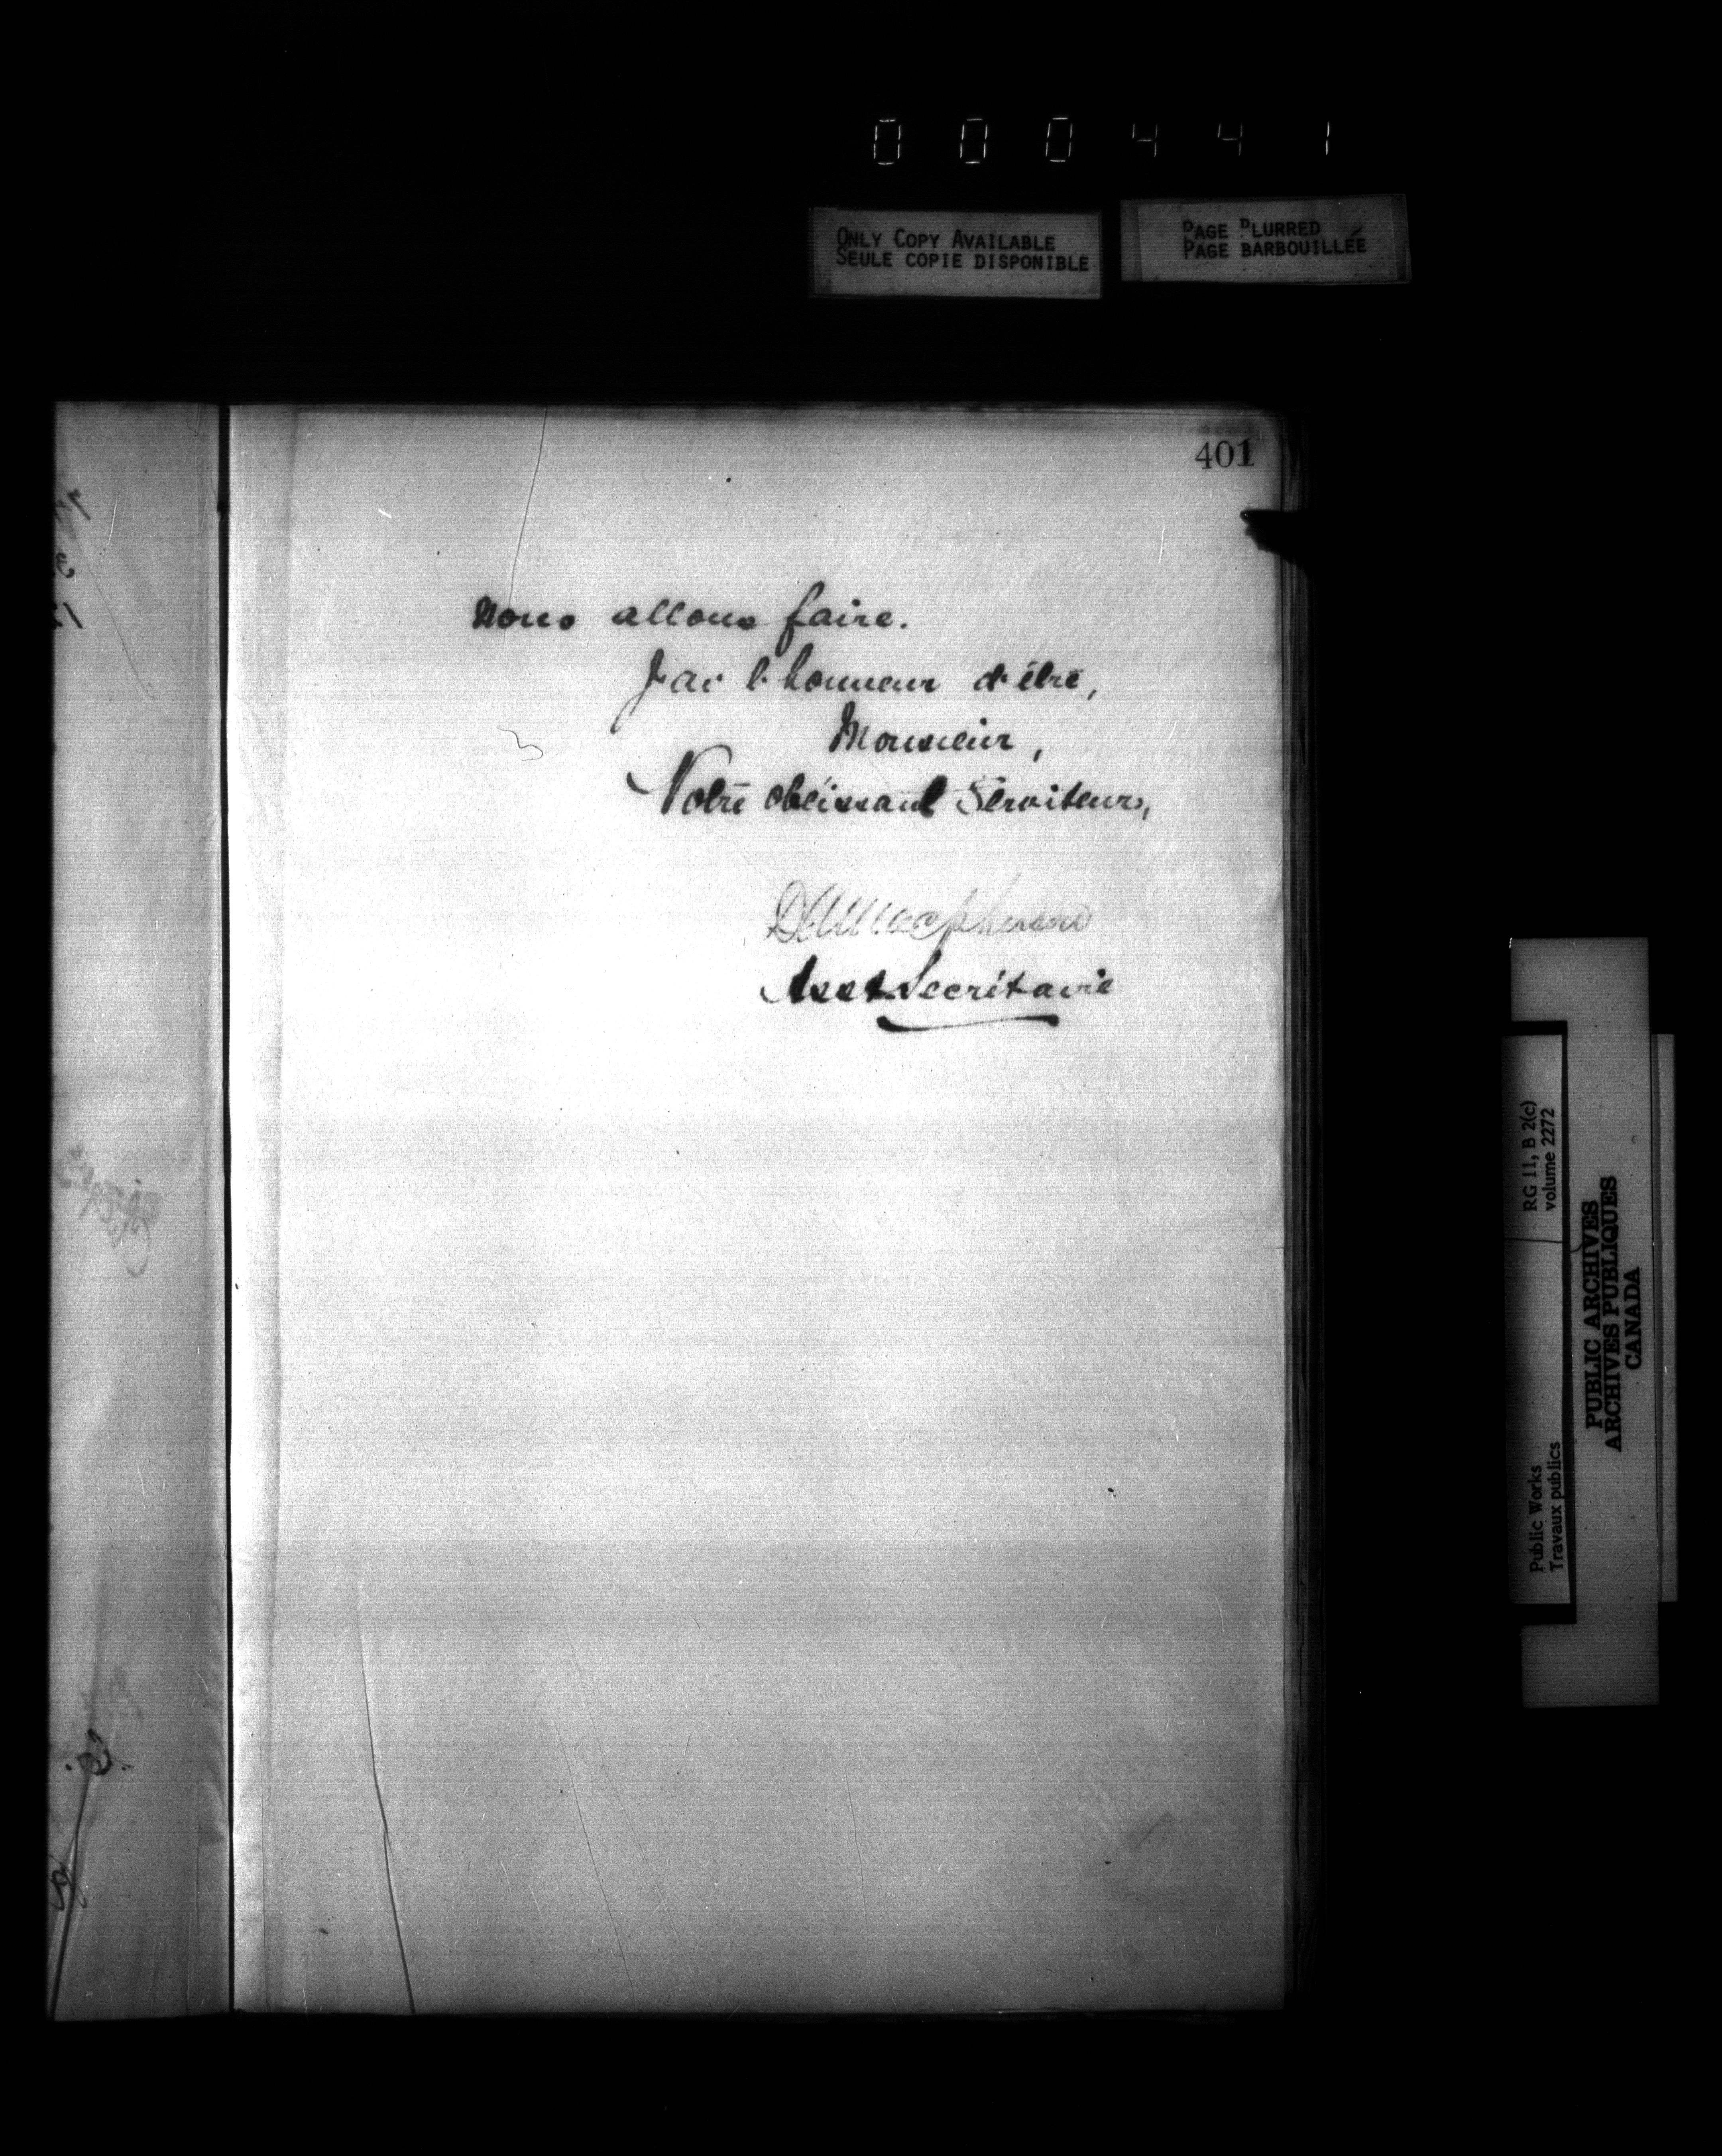 000441
ONLY COPY AVAILABLE
SEULE COPIE DISPONIBLE
PAGE BLURRED
PAGE BARBOUILLÉE
401
nous allons faire.
J'ai l'honneur d'être,
Monsieur,
Votre obéissant Serviteur,
DA Macpherson
Asst Secrétaire
RG 11, B 2(c)
volume 2272
Public Works
Travaux publics
PUBLIC ARCHIVES
ARCHIVES PUBLIQUES
CANADA